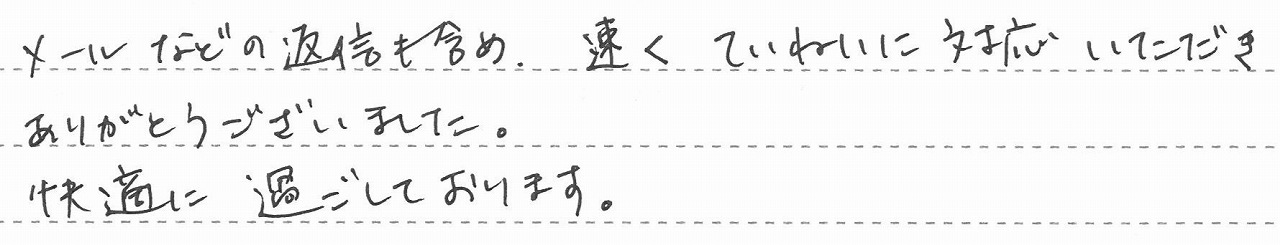 メールなどの返信も含め. 速く ていねいに 対応 いただき
ありがとうございました。
快適に 過ごしております。